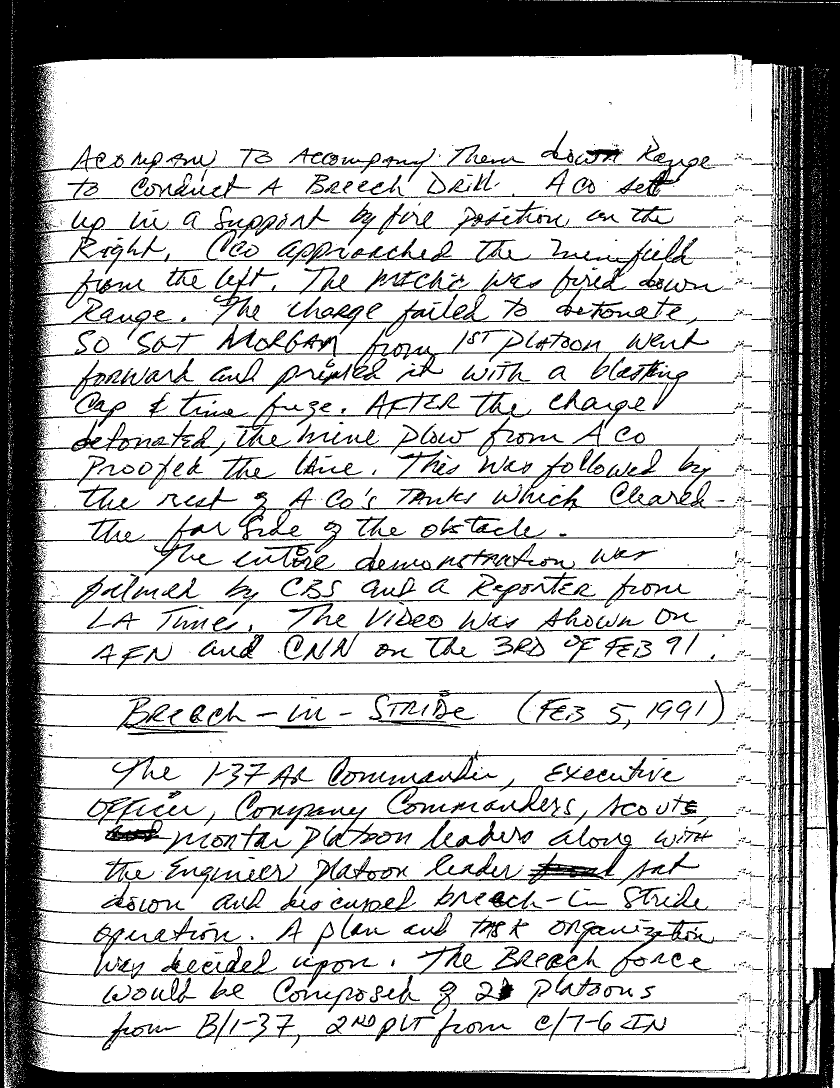 Acompany To Accompany Them down Range
to conduct A Breech Drill. A co set
up in a support by fire position on the
Right. Cco approached the minefield
from the left. The was fired down
Range. The charge failed to detonate,
SO SGT MORGAN from 1ST PLATOON went
forward and primed it with a blasting
Cap & time fuze. AFTER the charge
detonated, the mine plow from A co
Proofed the lane. This was followed by
the rest of A Co's Tanks which Cleared
the far Side of the obstacle.
The entire demonstration was
filmed by CBS and a Reporter from
LA Times. The Video was shown on
AFN and CNN on the 3RD OF FEB 91.
BReach-in-STRIDe (FEB 5, 1991)
The 1-37 AR Commander, Executive
OFFicer, Company Commanders, scouts,
mortar platoon leaders along with
the Engineer platoon leader sat
down and discussed breach-in Stride
operation. A plan and task organization
was decided upon. The Breach force
would be composed of 2 platoons
from B/1-37, 2ND PLT from C/7-6 IN